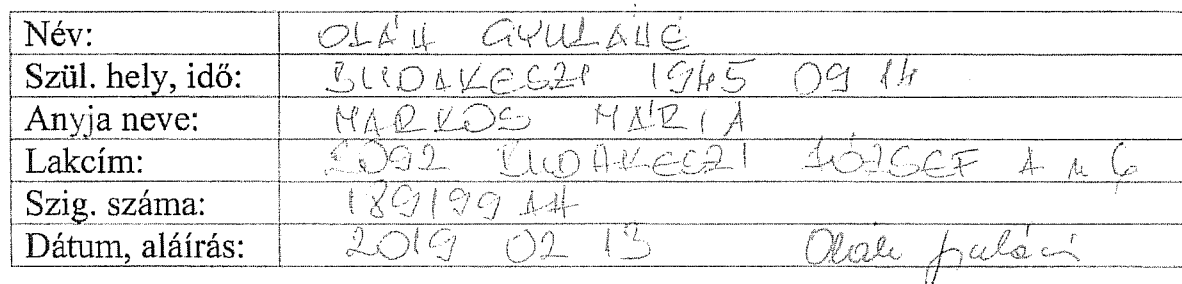 Név: OLÁH GYULÁNÉ
Szül. hely, idő: BUDAKESZI 1945 09 14
Anyja neve: MARKOS MÁRIA
Lakcím: 2092 BUDAKESZI JÓZSEF A u 6
Szig. száma: 189199 AH
Dátum, aláírás: 2019 02 13 Oláh Gyuláné